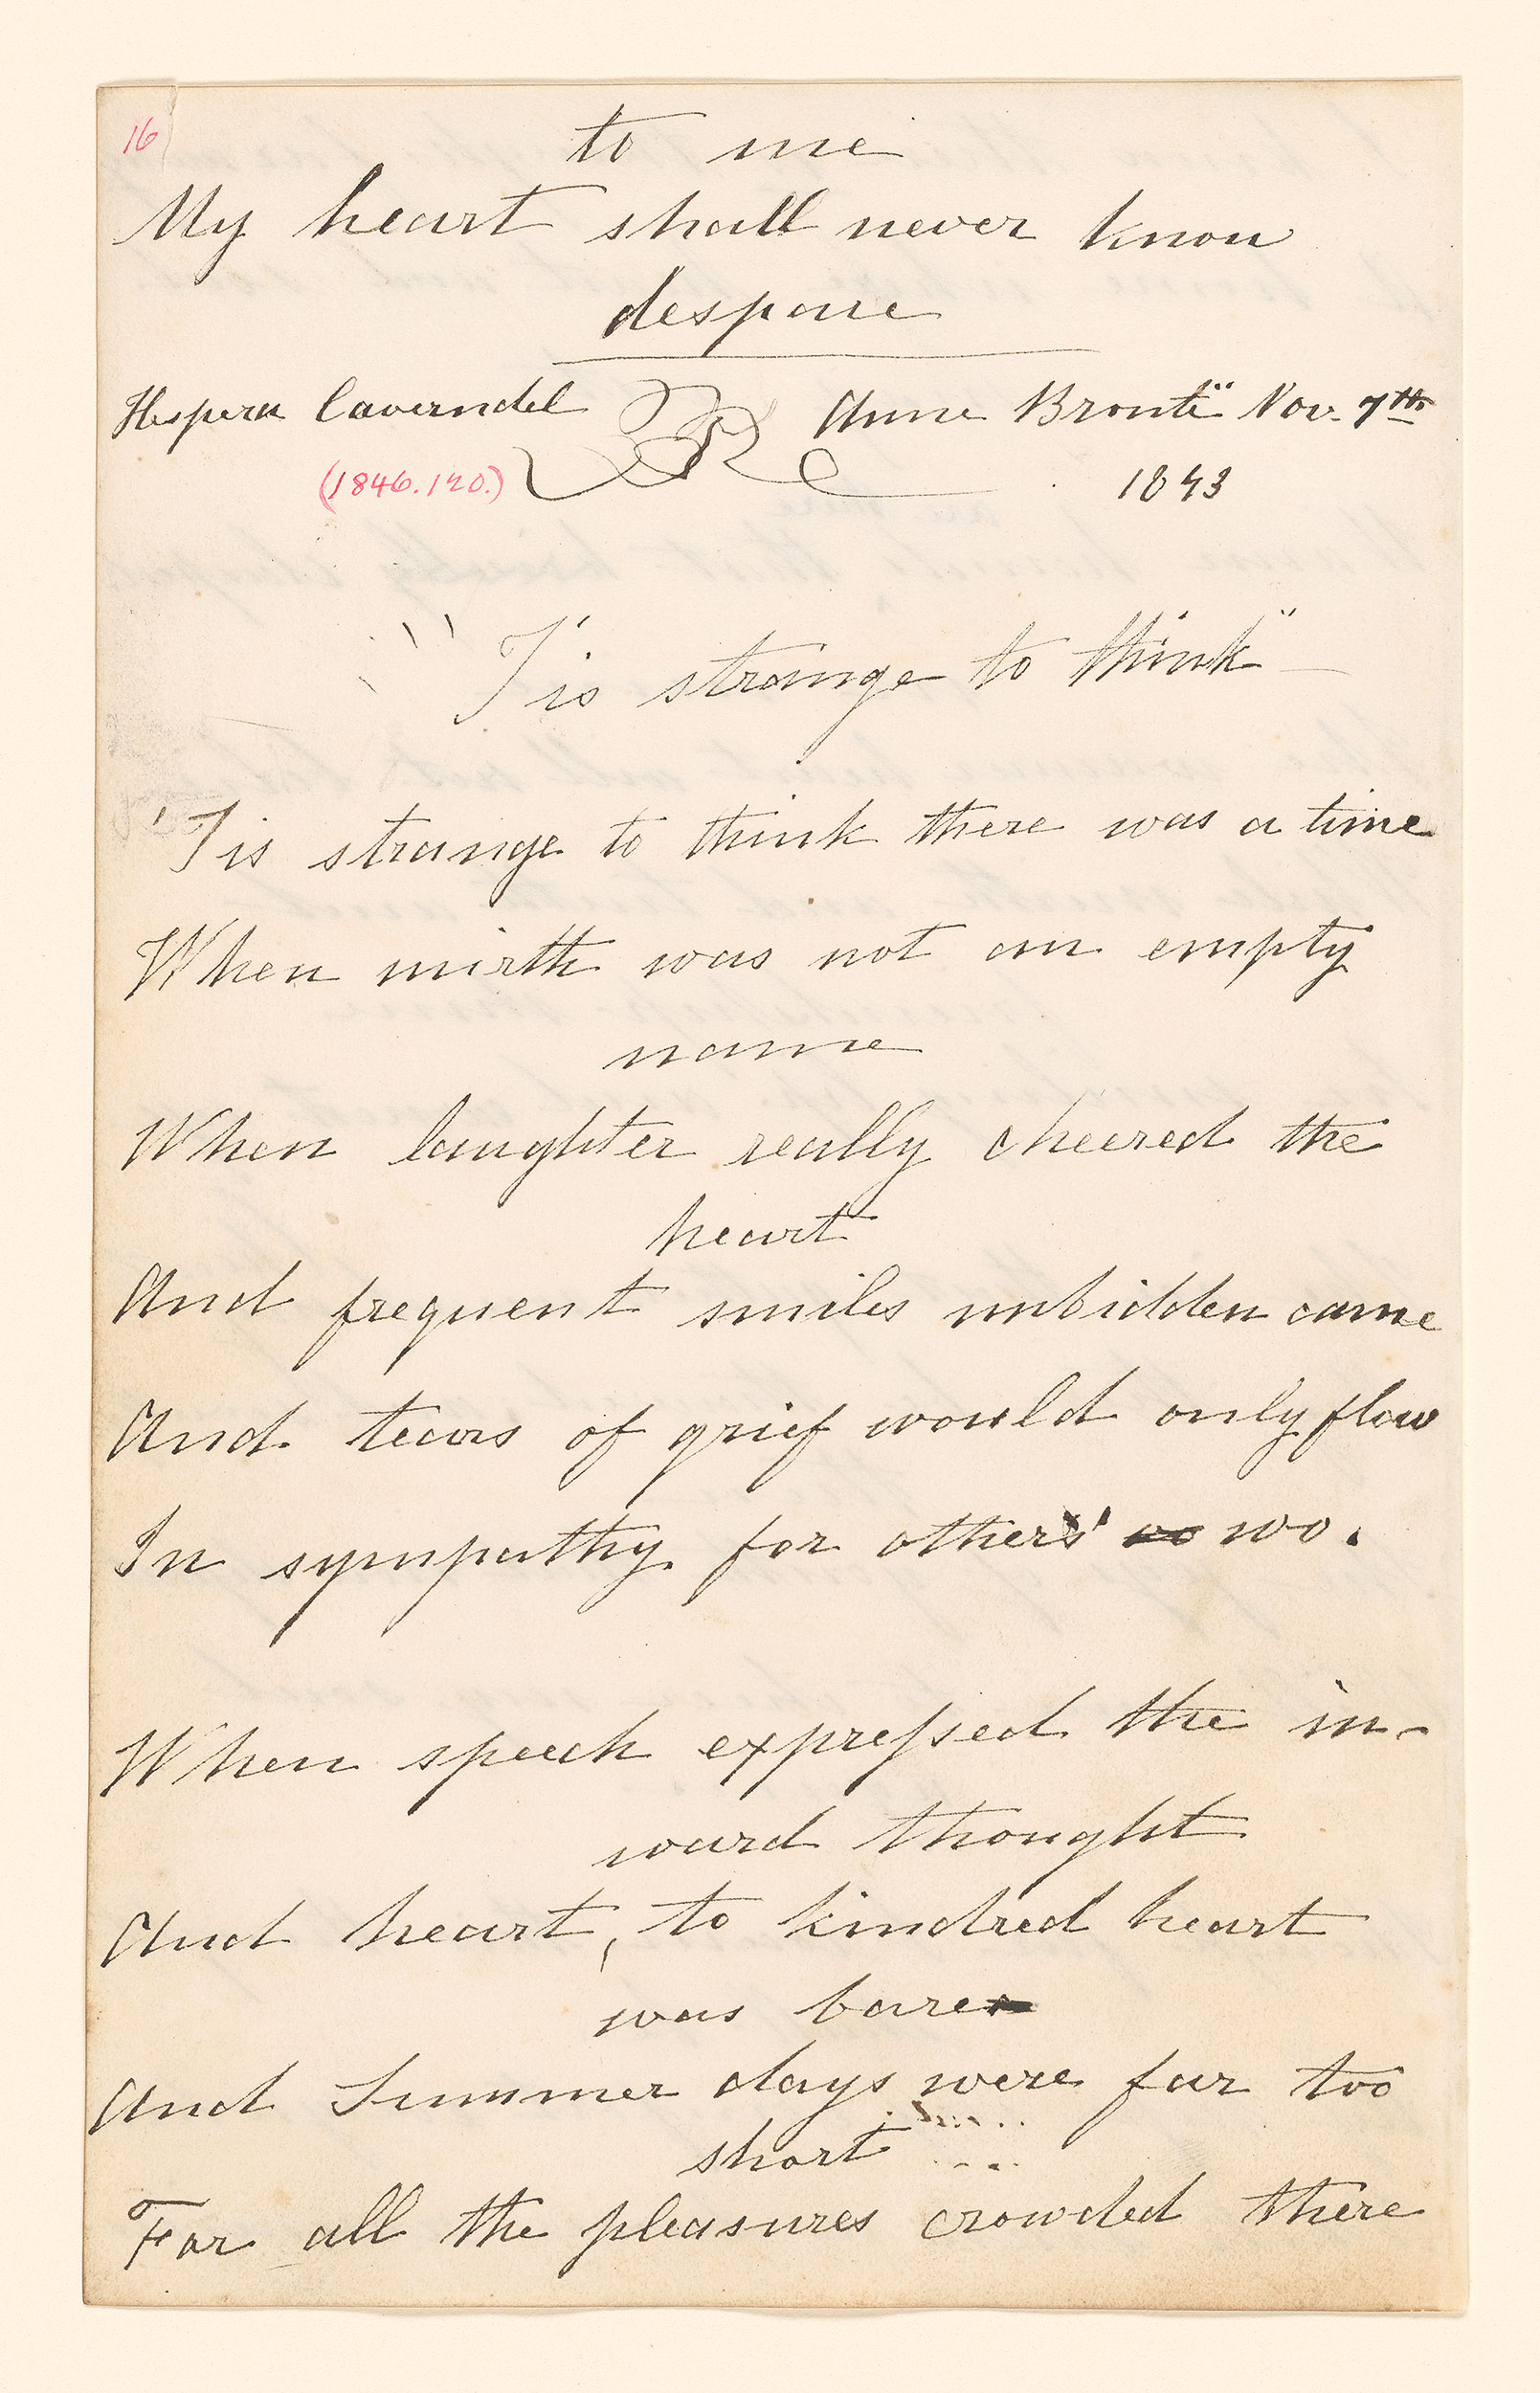 16
to me
My heart shall never know
despare
Hespera Caverndel Anne Brontë Nov. 7th
(1846.120.) 1843
"'Tis strange to think"
'Tis strange to think there was a time
When mirth was not an empty
name
When laughter really cheered the
heart
And frequent smiles unbidden came
And tears of grief would only flow
In sympathy for others' wo.
When speech expreſsed the in-
ward thought
And heart, to kindred heart
was bare
And Summer days were far too
short
For all the pleasures crowded there